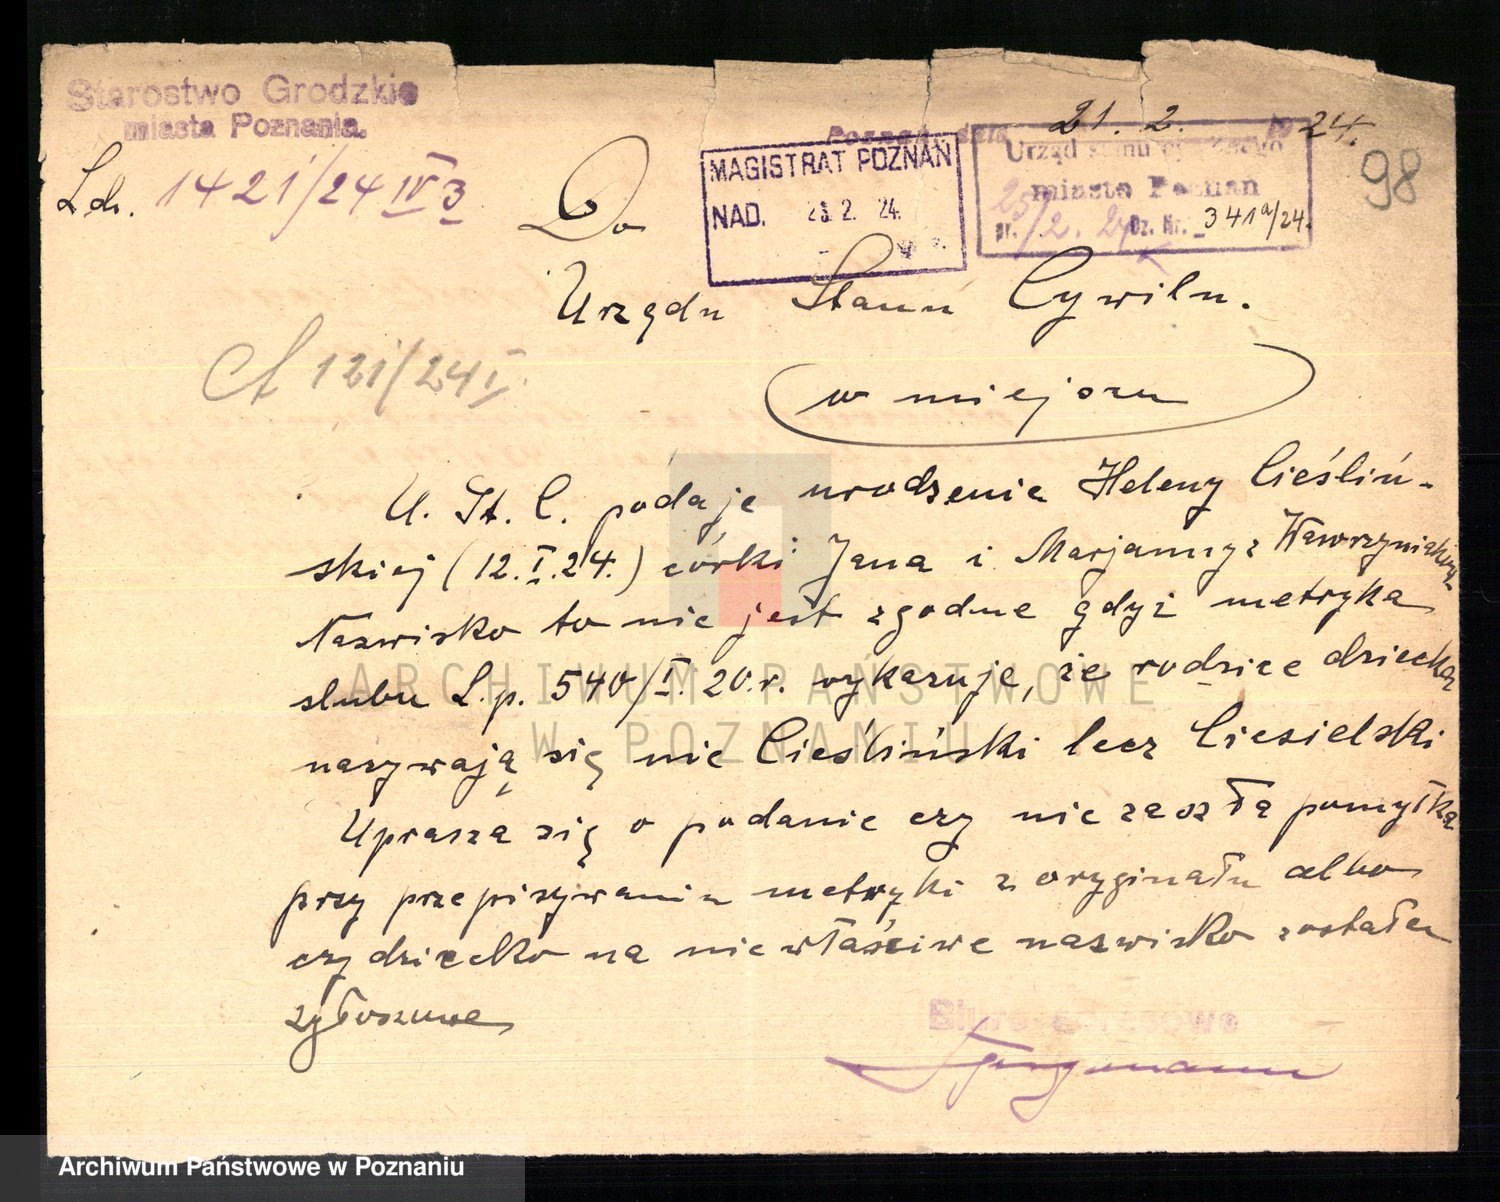 Starostwo Grodzkie
miasta Poznania.
Poznań, dnia 21. 2. 1924.
L.dz. 1421/24 IV 3
MAGISTRAT POZNAŃ
NAD. 23. 2. 24.
Urząd stanu cywilnego
miasta Poznań
pr. 25/2. 24 Dz. Nr. 341a/24.
98
Do
Urzędu Stanu Cywiln.
A 121/24 I.
w miejscu
U. St. C. podaje urodzenie Heleny Cieśliń-
skiej (12.I.24.) córki Jana i Marjanny z Wawrzyniaków
Nazwisko to nie jest zgodne gdyż metryka
slubu L.p. 540/I. 20.r. wykazuje, że rodzice dziecka
nazywają się nie Cieśliński lecz Ciesielski
Uprasza się o podanie czy nie zaszła pomyłka
przy przepisywaniu metryki z oryginału albo
czy dziecko na niewłaściwe nazwisko zostało
zgłoszone
ARCHIWUM PAŃSTWOWE
W POZNANIU
Archiwum Państwowe w Poznaniu